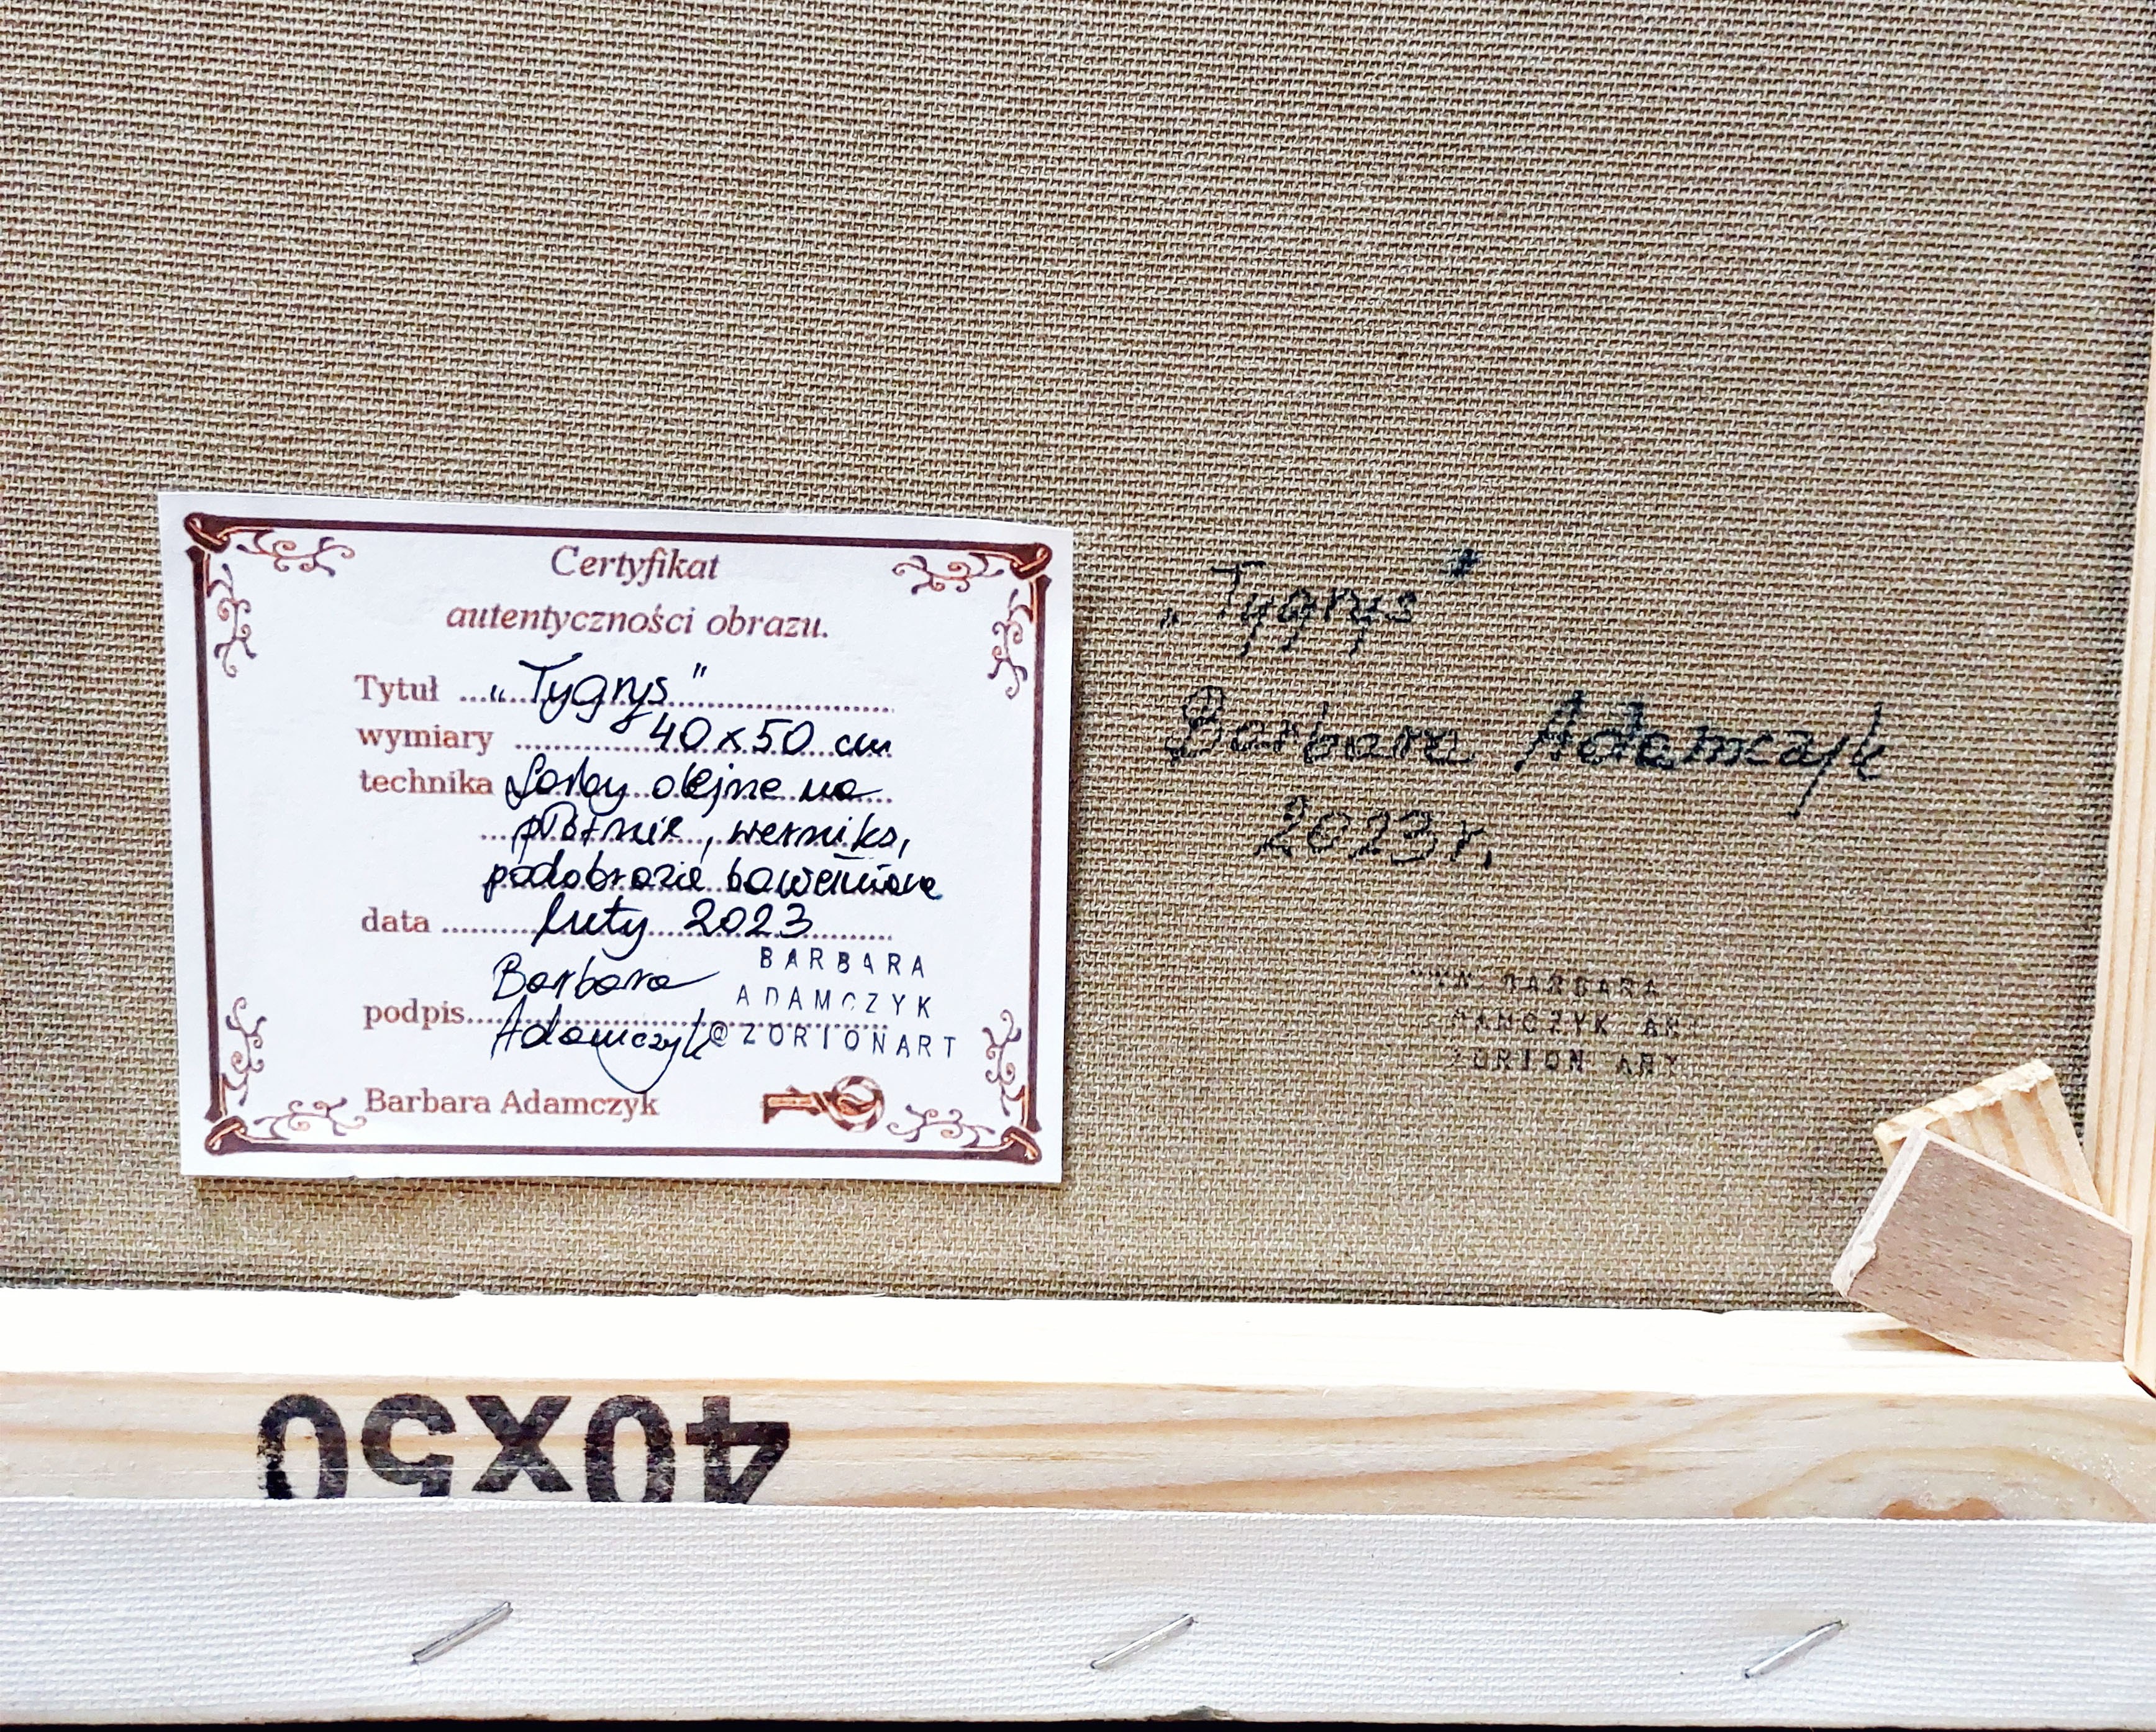 Certyfikat
autentyczności obrazu.
Tytuł „Tygrys"
wymiary 40x50 cm
technika Farby olejne na
płótnie, werniks,
podobrazie bawełniane
data luty 2023
Barbara
podpis Adamczyk
BARBARA
ADAMCZYK
@ZORIONART
Barbara Adamczyk
„Tygrys"
Barbara Adamczyk
2023 r.
BARBARA
ZORION ART
40x50